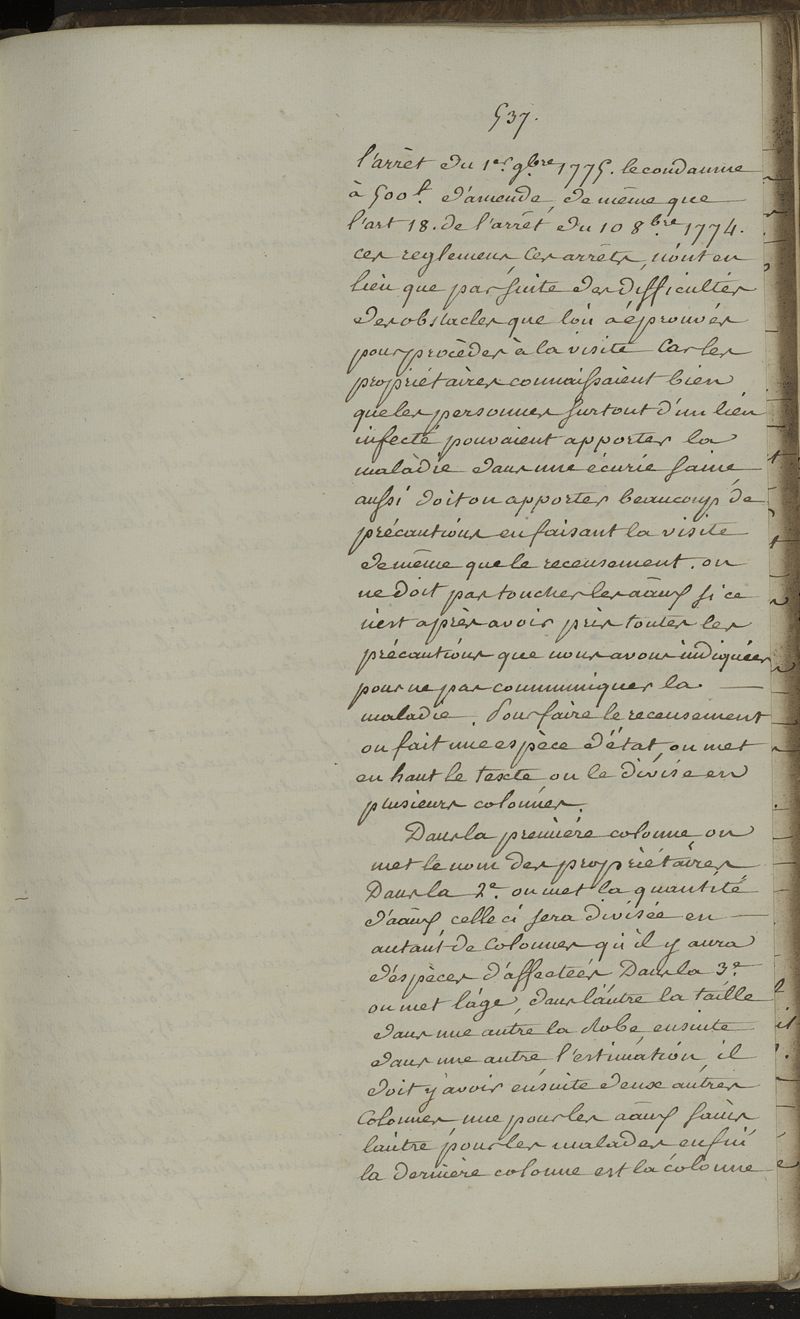 537.
l'arrèt du 1er 9bre 1775. le condamne
à 500 l. d'amende, de même que
l'art 18. de l'arrêt du 10 8bre 1774.
ces reglemens ces arrêts, n'ont eu
lieu que par suite des difficultés
des obstacles que l'on a éprouvés
pour procèder à la visite Car les
propriétaires connaissaient bien
que les personnes surtout d'un lieu
infecté pouvaient apporter la
maladie dans une écurie saine
aussi doit on apporter beaucoup de
précautions en faisant la visite
de même que le recensement. on
ne doit pas toucher les aãux si ce
n'est après avoir pris toutes les
précautions que nous avons indiquées
pour ne pas communiquer la
maladie. Pour faire le recensement
on fait une espèce d'état, on met
en haut le texte on le divise en
plusieurs colonnes.
Dans la première colonne on
met le nom des propriétaires
Dans la 2e. on met la quantité
d'aãux celle ci sera divisée en
autant de colonnes qu'il y aura
d'espèces d'affectées Dans la 3e.
on met l'âge, dans l'autre la taille
dans une autre la robe, ensuite
dans une autre l'estimation, il
doit y avoir ensuite deux autres
Colonnes une pour les aãux sains
l'autre pour les malades enfin
la dernière colonne est la colonne